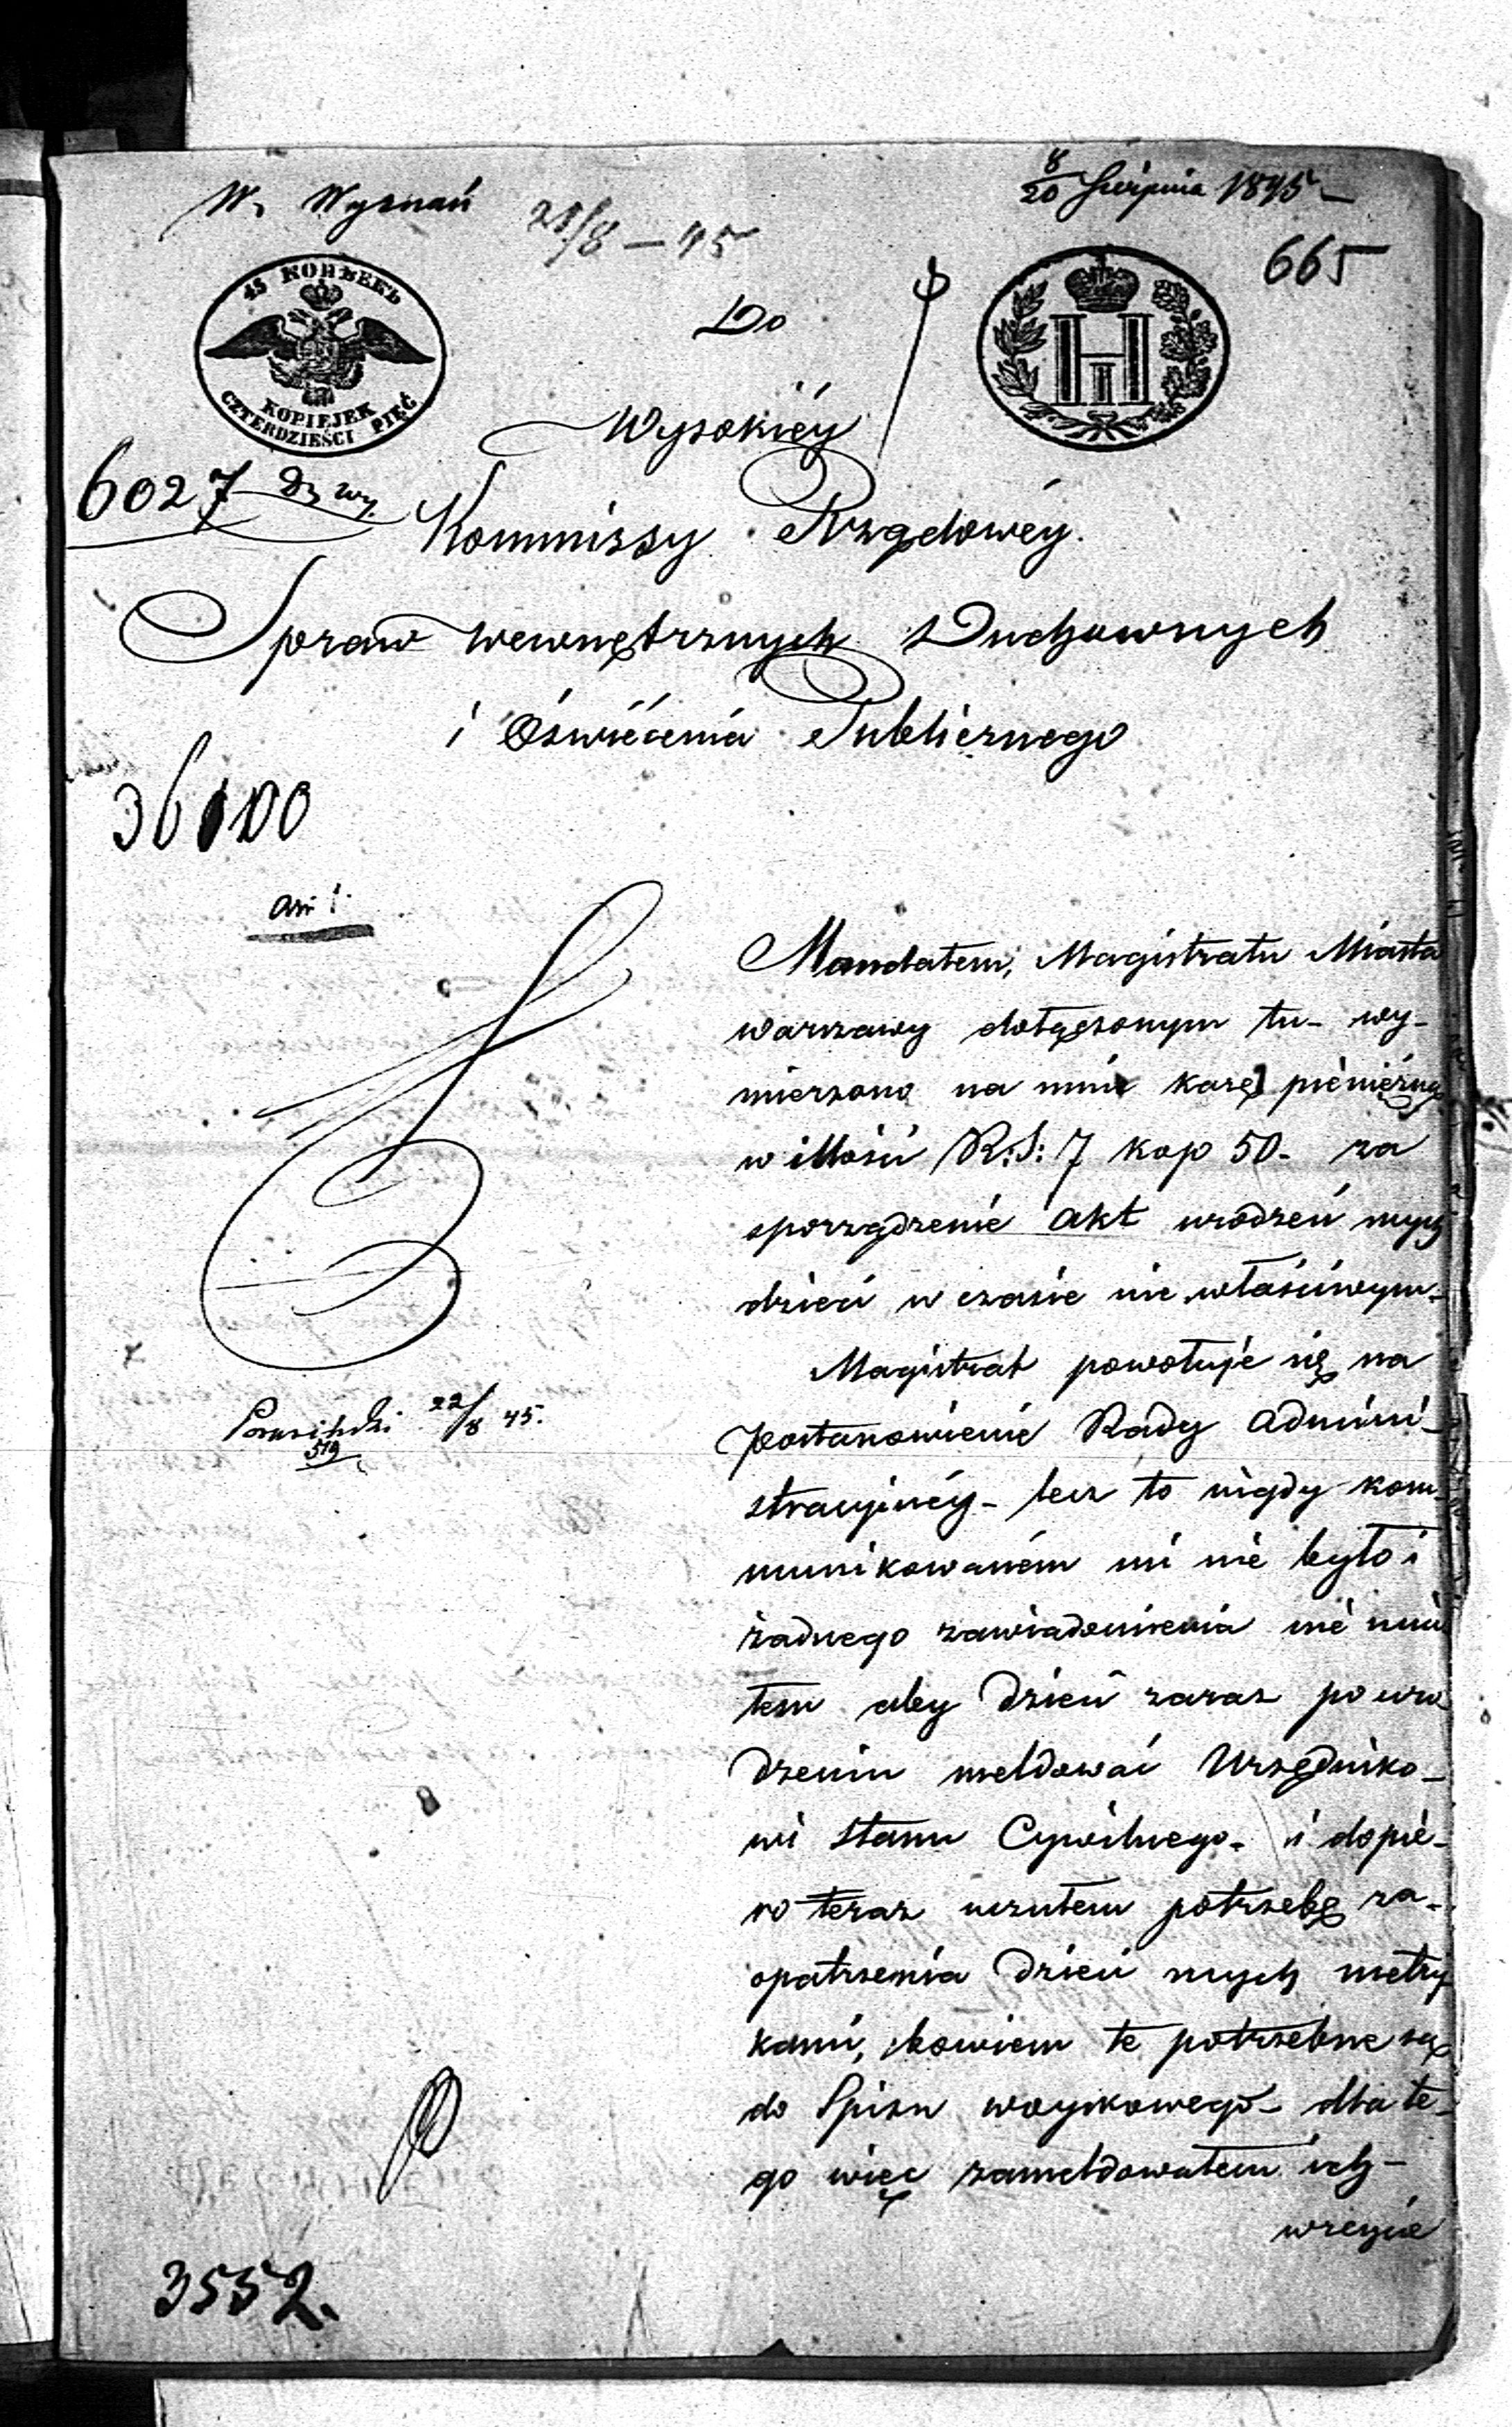 W. Wyznań
8/20 Sierpnia 1845
21/8 – 45
665
45 КОПѢЕКЪ
KOPIEJEK
CZTERDZIEŚCI PIĘĆ
Do
Wysokiéy
6027
Kommissy Rządowéy.
Spraw wewnętrznych Duchownych
i Oświécenia Publicznego
36100
Mandatem, Magistratu Miasta
Warszawy dołączonym tu- wy-
mierzono na mnie karę pienięzną
w illości R:S: 7 kop 50- za
sporządzenie akt urodzeń mych
dzieci w czasie nie właściwym-
Magistrat powołuje się na
Postanowienie Rady Admini-
stracyjnéy- lecz to nigdy kom-
munikowaném mi nie było i
żadnego zawiadomienia nie mia
łem aby dzieci zaraz po uro
dzeniu meldować Urzędniko-
wi Stanu Cywilnego- i dopie-
ro teraz uczułem potrzebę za-
opatrzenia dzieci mych metry
kami, bowiem te potrzebne są
do Spisu woyskowego- dla te-
go więc zameldowałem ich-
22/8 45.
519
3552.